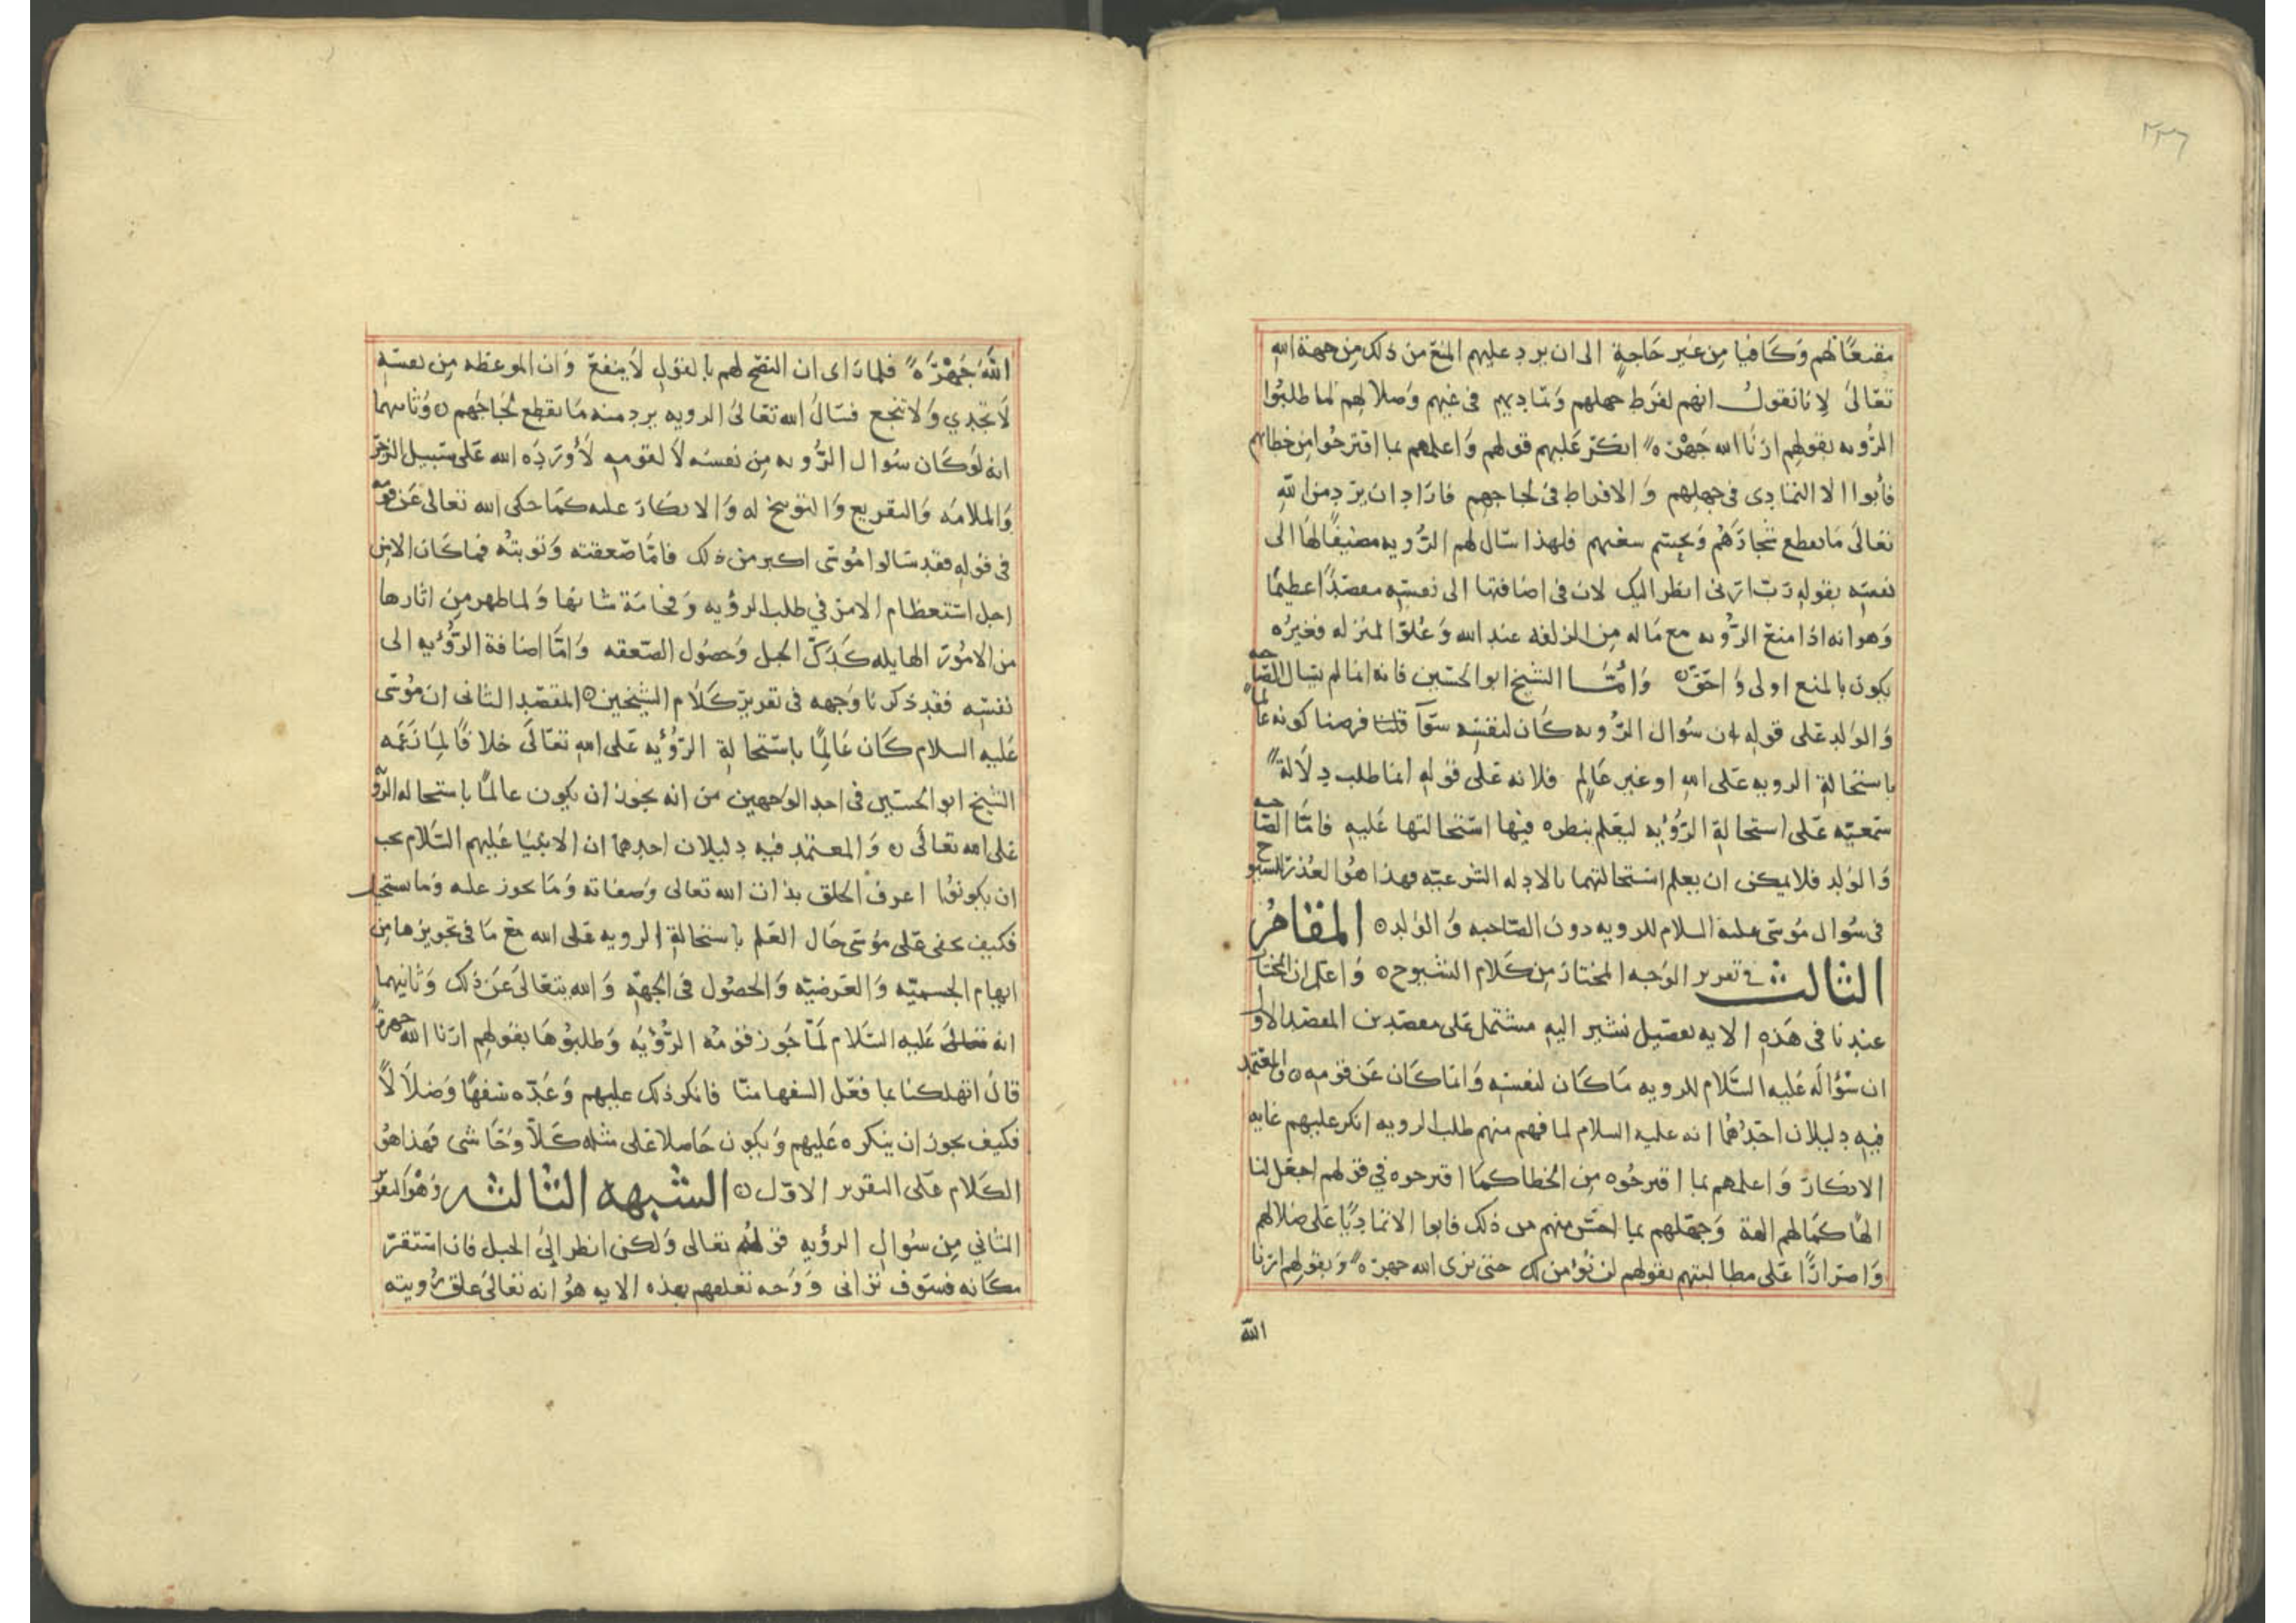 ٢٣٦
مقنعًا لهم وَكَافيا مِن غير حَاجةٍ الى ان يرد عليهم المنع من ذلك من جهة الله
تعَالىَ لانا نقول انهم لفرَط جهلهم وَتماديهم فى غيهم وَضلالهم لما طلبُوا
الرُّويه بقولهم ارنَا الله جَهْرَه انكر عَليهم قولهم وَاعلمهم بما اقترحُوا من خطاهم
فأبوا الا التمادى فى جهلهم وَالافراط فى لجاجهم فارَاد ان يرد من اللهِ
تعَالىَ مَا يقطع شجارَهُم وَيحسم سغبهم فلهذا سَال لهم الرُّويه مضيفًا لهَا الى
نفسه بقوله رَب ارنى انظر اليك لان فى اضافتها الى نفسه مقصدًا عظيمًا
وَهو انه اذا منع الرُّويه مع مَا له مِن الزلفه عند الله وَعُلوّ المنزله فغيرُه
يكون بالمنع اولى وَاحَق وَامَّا الشيخ ابو الحسين فانه انما لم يسَال الصاحبه
وَالولد عَلى قوله ان سُوال الرُّويه كَان لنفسه سوَآ قلنا فرضنا كونه عالماً
باستحَالةِ الرويه عَلى الله او غير عَالِم فلانه عَلى قوله انما طلب دِلَالةً
سَمعيّه عَلى استحالةِ الرُّؤيه ليعَلم بنظره فيها استحَالتها عَليهِ فامَّا الصَّاحبه
وَالولد فلا يمكن ان يعلم استحالتهما بالادله الشرعيّه فهذا هُو العُذر للشيوخ
فى سُوال مُوسَى عليه السلام للرويه دون الصَّاحبه وَالولد المقامُ
الثالث فى تقرير الوَجه المختار مِن كَلام الشيوخ وَاعلم ان المختار
عندنا فى هَذه الايه تفصيل نشير اليه مشتمل عَلى مقصدين المقصد الاول
ان سُؤالَه عَليه السَّلام للرويه مَا كَان لنفسه وَانما كَان عَن قومه وَالمعتمد
فيه دليلان احَدهُما انه عليه السلام لما فهم منهم طلب الرويه انكر عليهم غايه
الانكار وَاعلمهم بما اقترحُوه مِن الخطا كمَا اقترحوه فى قولهم اجعَل لنا
الهًا كمَا لهم الهة وَجهّلهم بما احسَّ منهم من ذلك فابوا الا تمَاديًا عَلى ضلالهم
وَاصرارًا عَلى مطالبتهم بقولهم لن نؤمن لك حتى نرى الله جهرَةً وَبقولهم ارنا
الله
اللّهَ جَهْرَةً فلما رَاى ان النصح لهم بالقول لَا ينفع وَان الموعظه مِن نفسه
لَا تجدي وَلا تنجع فسَال الله تعَالىَ الرويه يرد منه مَا يقطع لجاجَهم وَثانيهما
انه لوَ كَان سُوال الرُّويه مِن نفسه لَا لقومه لَأورَدَه الله عَلى سَبيل الزجر
وَالملامَه وَالتقريع وَالتوبيخ له وَالانكار عليه كمَا حكى الله تعالى عَن قومه
فى قوله فقد سَالوا مُوسى اكبر من ذلك فامَّا صَعقته وَتوبتُه فما كَان الا من
اجل استعظام الامر في طلب الرؤيه وَفخامَة شانها وَلما ظهر مِن اثارها
من الامُور الهايله كَدَكّ الجبل وَحصُول الصّعقه وَامَّا اضافة الرُّؤيه الى
نفسه فقد ذكرنا وَجهه فى تقرير كَلَام الشيخين المقصد الثانى ان مُوسَى
عَليه السلام كَان عَالِمًا باستحالةِ الرّؤيه عَلى الله تعَالىَ خلافًا لِما زعَمه
الشيخ ابو الحسَين فى احد الوَجهين من انه يجوز ان يكون عالمًا باستحاله الرؤيه
عَلى الله تعَالىَ وَالمعتمد فيه دليلان احدهما ان الانبيَا عَليهم السَّلام يجب
ان يكونوُا اعرف الخلق بذات الله تعالى وَصفاته وَمَا يجوز عليه وَما يستحيل
فكيف يخفى عَلى مُوسَى حَال العَلم باستحالةِ الرويه عَلى الله مع مَا فى تجويزها مِن
ايهام الجسميّه وَالعَرضيّه وَالحصُول فى الجهه وَالله يتعَالىَ عَن ذلك وَثانيهما
انه عَليه السَّلام لَمّا جَوز قومُه الرُّؤيَه وَطلبوُهَا بقولهم ارنا الله جهرةً
قال اتهلكنا بما فعَل السفها منّا فانكر ذلك عليهم وَعَدّه سَفهًا وَضلالًا
فكيف يجوز ان ينكره عَليهم وَيكون حَاصلًا عَلى مثله كَلّا وَحَاشى فهذا هُو
الكَلام عَلى التقرير الاوّل الشبهه الثالثه وَهُو التقرير
الثاني مِن سُوال الرؤيه قوله تعالى وَلكن انظر إلى الجبل فان استقرّ
مكَانه فسَوف ترانى وَوَجه تعلقهم بهذه الايه هُو انه تعالىَ علق رُويته